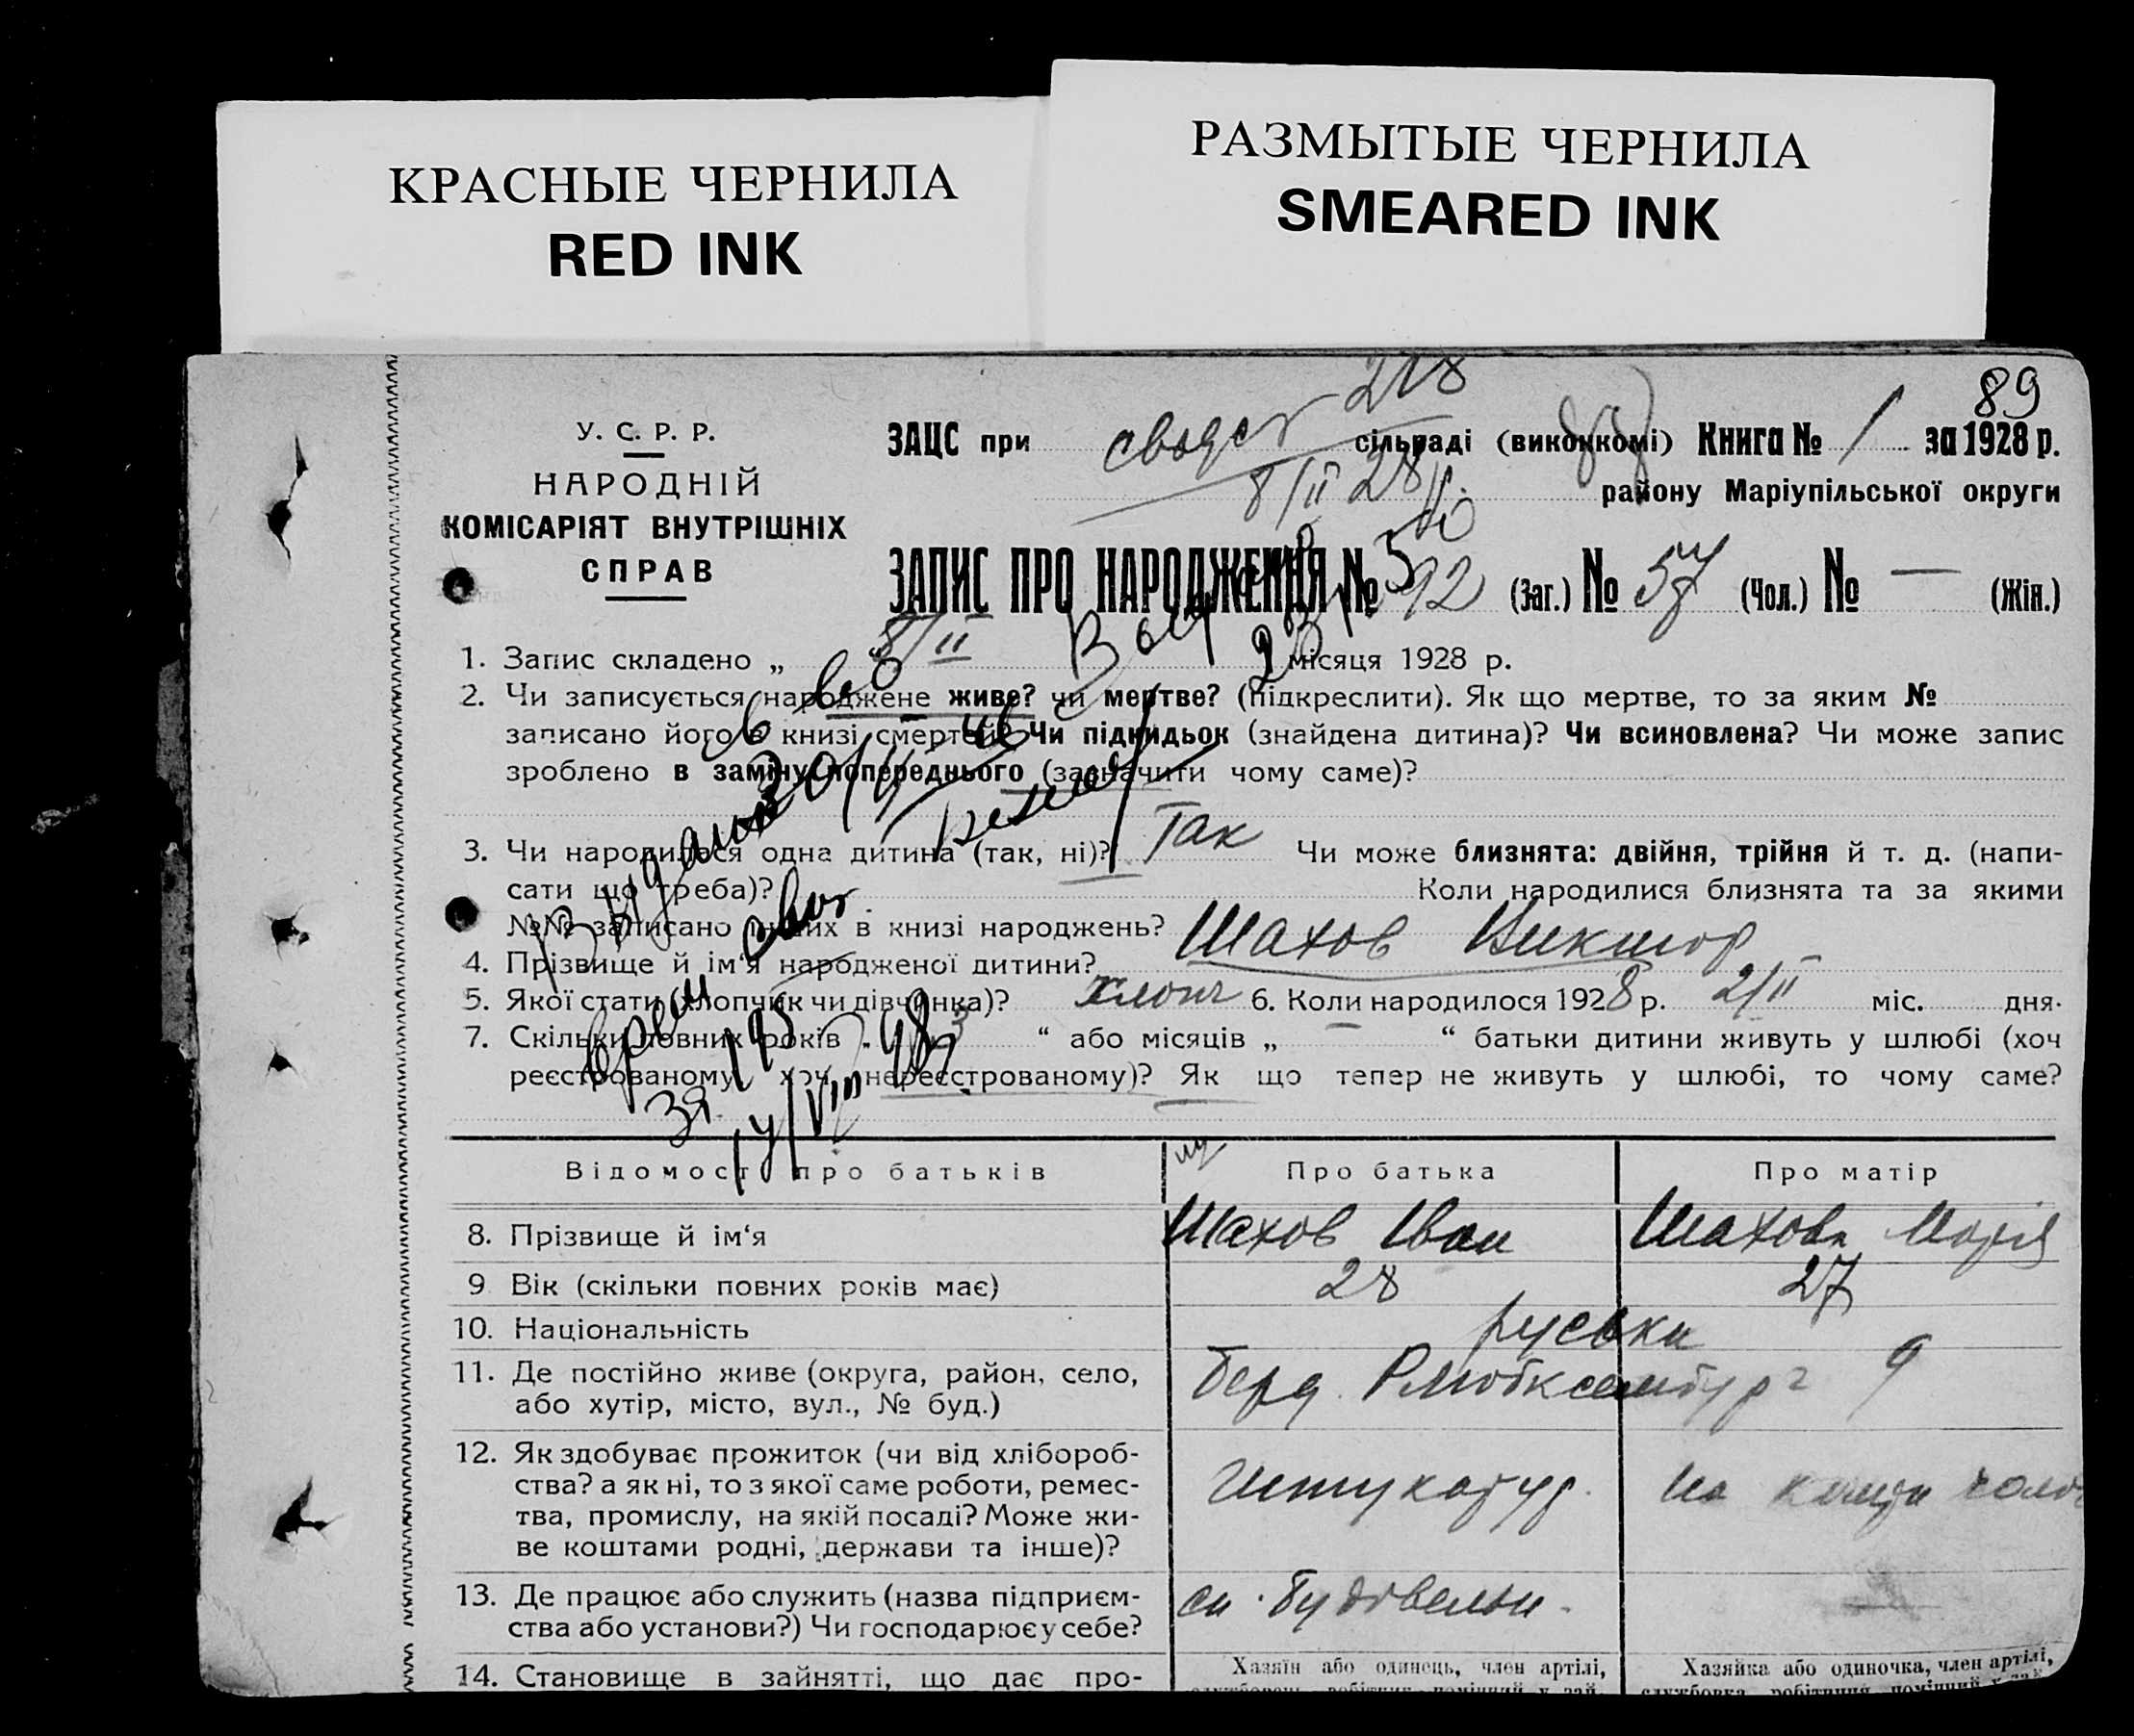 КРАСНЫЕ ЧЕРНИЛА
RED INK
РАЗМЫТЫЕ ЧЕРНИЛА
SMEARED INK
89
У. С. Р. Р.
НАРОДНІЙ
КОМІСАРІЯТ ВНУТРІШНІХ
СПРАВ
ЗАЦС при сільраді (виконкомі) Книга № 1 за 1928 р.
8/II 28
району Маріупільської округи
ЗАПИС ПРО НАРОДЖЕННЯ № 92 (Заг.) № 57 (Чол.) № — (Жін.)
1. Запис складено „ 8/II місяця 1928 р.
2. Чи записується народжене живе? чи мертве? (підкреслити). Як що мертве, то за яким №
записано його в книзі смертей? Чи підкидьок (знайдена дитина)? Чи всиновлена? Чи може запис
зроблено в заміну попереднього (зазначити чому саме)?
3. Чи народилася одна дитина (так, ні)? Так Чи може близнята: двійня, трійня й т. д. (напи-
сати що треба)? Коли народилися близнята та за якими
№№ записано інших в книзі народжень?
4. Прізвище й ім‘я народженої дитини? Шахов Виктор
5. Якої стати (хлопчик чи дівчинка)? хлопч 6. Коли народилося 1928 р. 2/II міс. дня.
7. Скільки повних років „ 3 “ або місяців „ — “ батьки дитини живуть у шлюбі (хоч
реєстрованому, хоч нереєстрованому)? Як що тепер не живуть у шлюбі, то чому саме?
Відомості про батьків Про батька Про матір
8. Прізвище й ім‘я Шахов Иван Шахова Марія
9 Вік (скільки повних років має) 28 27
10. Національність руськи
11. Де постійно живе (округа, район, село,
або хутір, місто, вул., № буд.) Берд. Р. Любксембург 9
12. Як здобуває прожиток (чи від хлібороб-
ства? а як ні, то з якої саме роботи, ремес-
тва, промислу, на якій посаді? Може жи-
ве коштами родні, держави та інше)? Штукатур.
13. Де працює або служить (назва підприєм-
ства або установи?) Чи господарює у себе? Будівельн.
14. Становище в зайнятті, що дає про-
Хазяїн або одинець, член артілі,
Хазяйка або одиночка, член артілі,